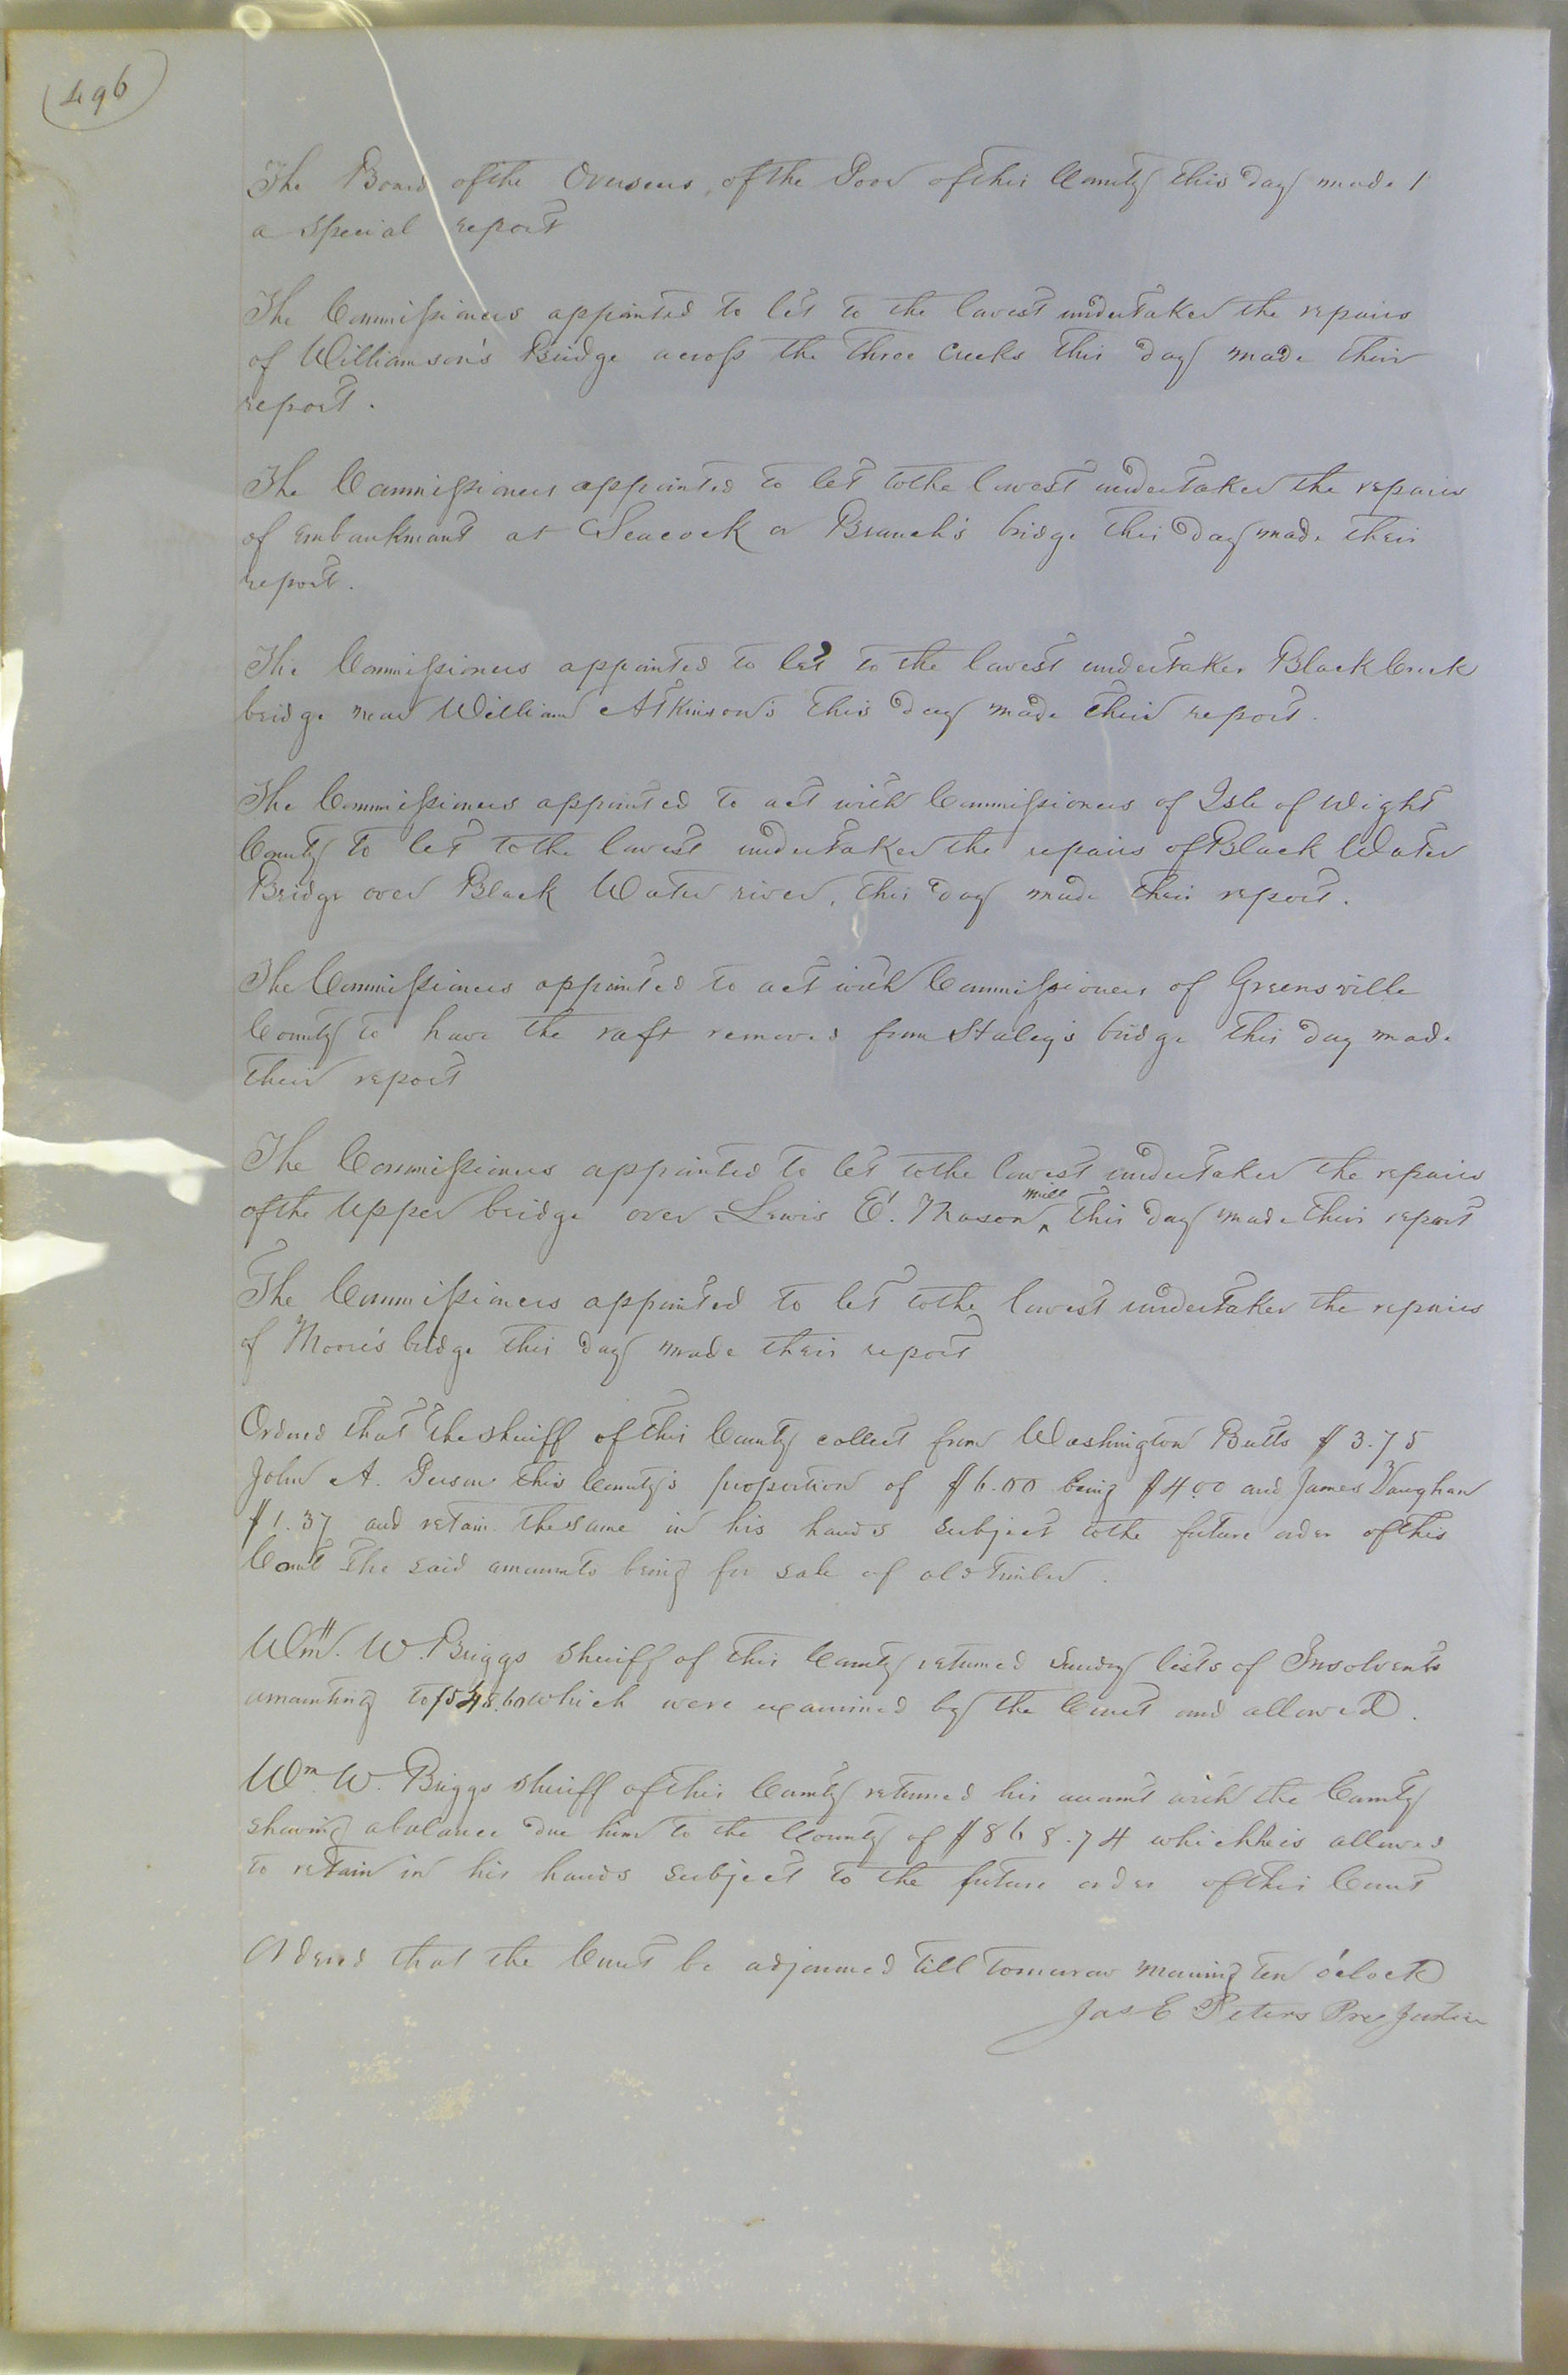 496
The Board of the Overseers, of the Poor of this County this day made
a special report
The Commissioners appointed to let to the lowest undertaker the repairs
of Williamson's Bridge across the Three Creeks this day made their
report.
The Commissioners appointed to let to the lowest undertaker the repairs
of embankment at Seacock or Branch's bridge this day made their
report.
The Commissioners appointed to let to the lowest undertaker Black Creek
bridge near William Atkinson's this day made their report.
The Commissioners appointed to act with Commissioners of Isle of Wight
County to let to the lowest undertaker the repairs of Black Water
Bridge over Black Water river, this day made their report.
The Commissioners appointed to act with Commissioners of Greensville
County to have the raft removed from Staley's bridge this day made
their report
The Commissioners appointed to let to the lowest undertaker the repairs
of the Upper bridge over Lewis E. Mason mill this day made their report
The Commissioners appointed to let to the lowest undertaker the repairs
of Moore's bridge this day made their report
Ordered that the sheriff of this County collect from Washington Butts $3.75
John A. Person this County's proportion of $6.00 being $4.00 and James Vaughan
$1.37 and retain the same in his hands subject to the future order of this
Court the said amounts being for sale of old timber.
Wm. W. Briggs Sheriff of this County returned sundry lists of Insolvents
amounting to which were examined by the Court and allowed.
Wm W. Briggs sheriff of this County returned his account with the County
showing a balance due him to the County of $868.74 which he is allowed
to retain in his hands subject to the future order of this Court
Ordered that the Court be adjourned till tomorrow morning ten o'clock
Jas E Peters Pres Justice